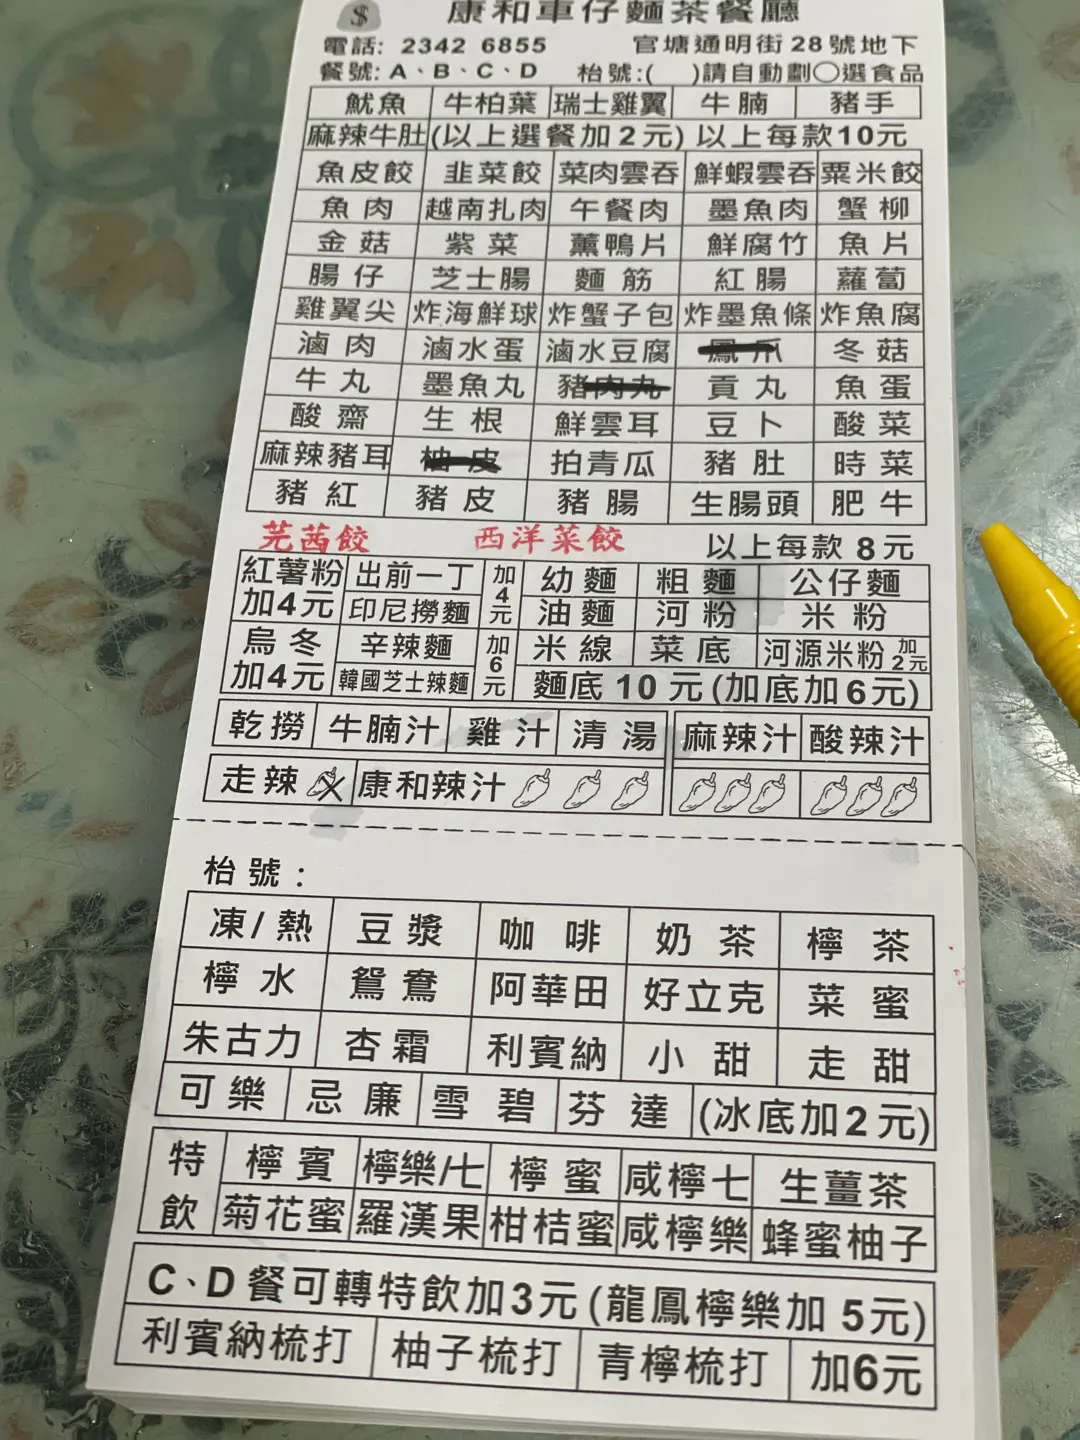 $ 康和車仔麵茶餐廳
電話: 2342 6855 官塘通明街28號地下
餐號: A、B、C、D 枱號:( )請自動劃○選食品
魷魚 牛柏葉 瑞士雞翼 牛腩 豬手
麻辣牛肚(以上選餐加2元) 以上每款10元
魚皮餃 韭菜餃 菜肉雲吞 鮮蝦雲吞 粟米餃
魚肉 越南扎肉 午餐肉 墨魚肉 蟹柳
金菇 紫菜 薰鴨片 鮮腐竹 魚片
腸仔 芝士腸 麵筋 紅腸 蘿蔔
雞翼尖 炸海鮮球 炸蟹子包 炸墨魚條 炸魚腐
滷肉 滷水蛋 滷水豆腐 鳳爪 冬菇
牛丸 墨魚丸 豬肉丸 貢丸 魚蛋
酸齋 生根 鮮雲耳 豆卜 酸菜
麻辣豬耳 柚皮 拍青瓜 豬肚 時菜
豬紅 豬皮 豬腸 生腸頭 肥牛
芫茜餃 西洋菜餃 以上每款 8元
紅薯粉 加4元 出前一丁 印尼撈麵 加4元 幼麵 粗麵 公仔麵
油麵 河粉 米粉
烏冬 加4元 辛辣麵 韓國芝士辣麵 加6元 米線 菜底 河源米粉 加2元
麵底 10 元(加底加6元)
乾撈 牛腩汁 雞汁 清湯 麻辣汁 酸辣汁
走辣 康和辣汁
枱號:
凍/熱 豆漿 咖啡 奶茶 檸茶
檸水 鴛鴦 阿華田 好立克 菜蜜
朱古力 杏霜 利賓納 小甜 走甜
可樂 忌廉 雪碧 芬達 (冰底加2元)
特飲 檸賓 檸樂/七 檸蜜 咸檸七 生薑茶
菊花蜜 羅漢果 柑桔蜜 咸檸樂 蜂蜜柚子
C、D 餐可轉特飲加3元(龍鳳檸樂加 5元)
利賓納梳打 柚子梳打 青檸梳打 加6元